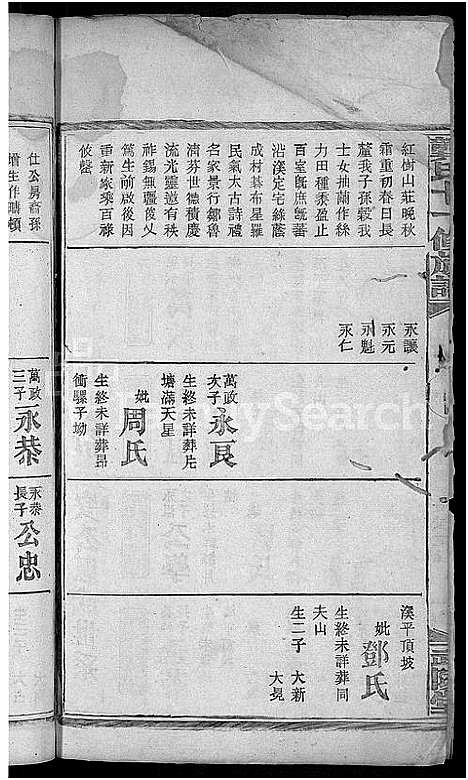 紅樹山莊晚秋
霜重初春日長
蘆我子孫穀我
士女抽繭作絲
力田種黍盈止
百室既庶旣蕃
沿溪定宅綠蔭
成村碁布星羅
民氣太古詩禮
名家景行鄒魯
濟芬世德積慶
流光靈邀有赫
祚錫無疆後乂
篤生前啟後因
重新家乘百祿
攸罄
永讓
永元
永魁
永仁
萬政
次子
永良
生終未詳葬片
塘滿天星
妣
周氏
生終未詳葬昂
衝騾子坳
溪平頂坡
妣
鄧氏
生終未詳葬同
夫山
生二子
大新
大晃
萬政
三子
永恭
永恭
長子
公忠
十一修族譜